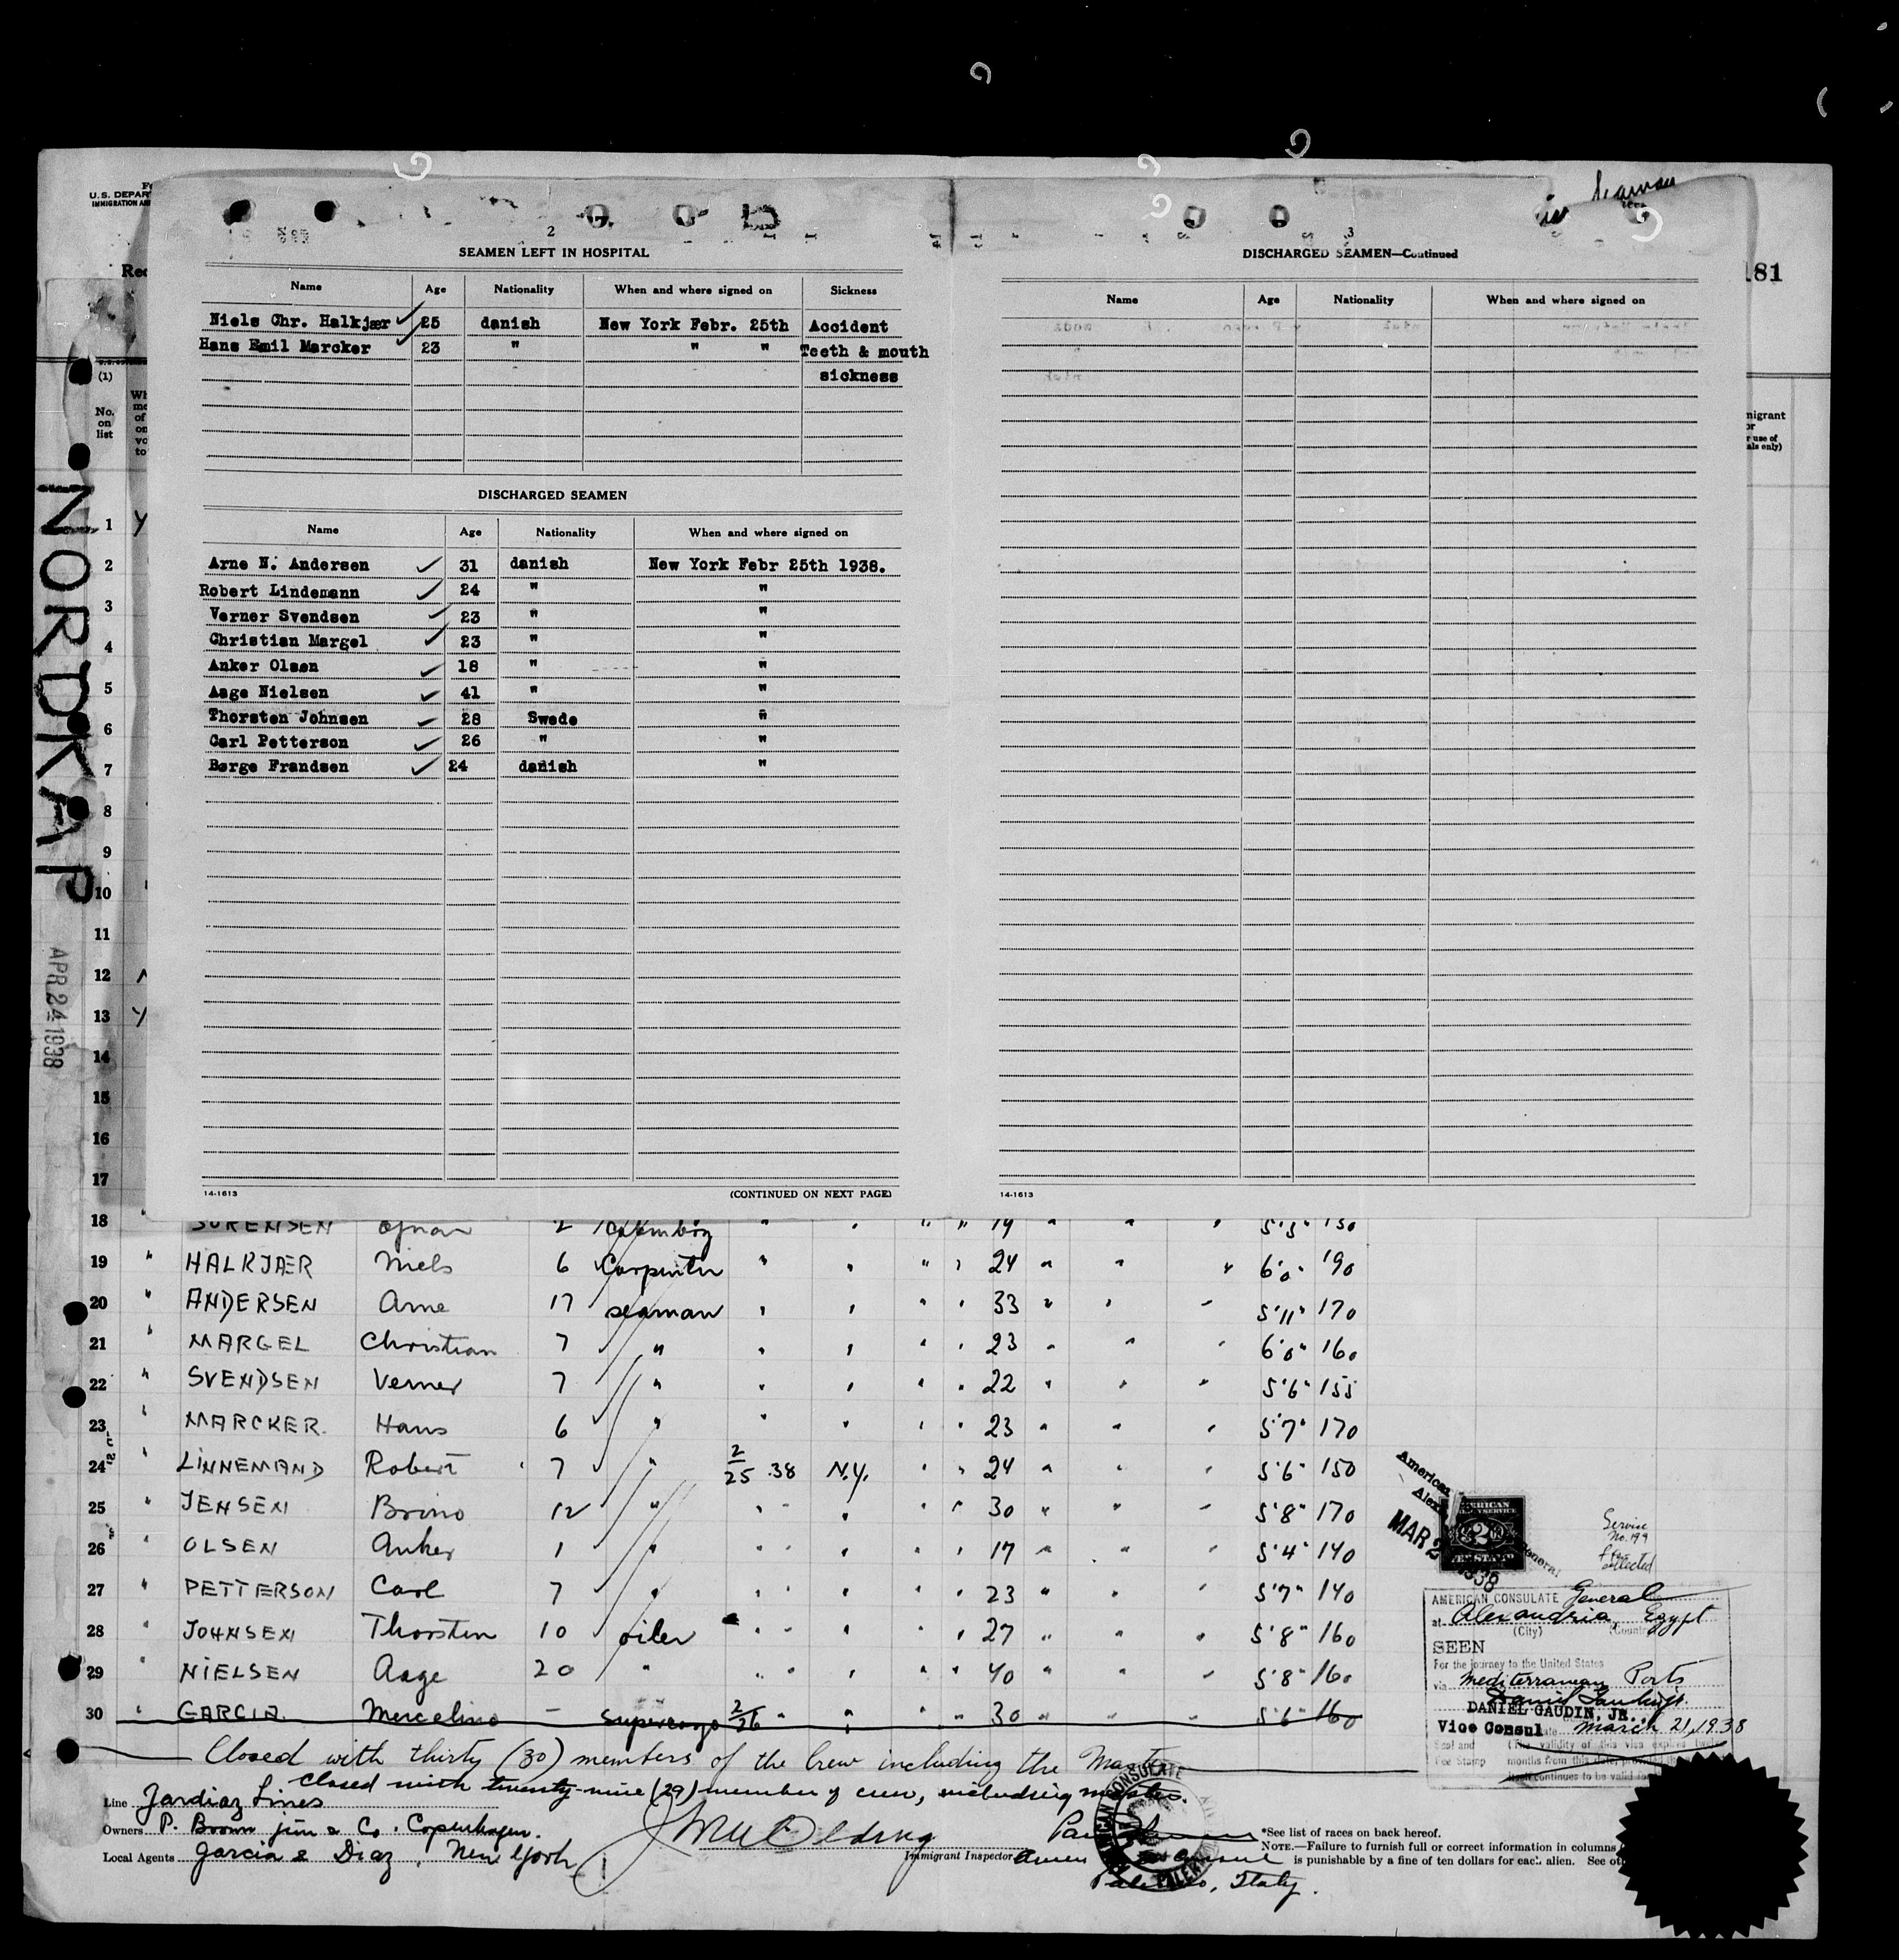 U.S. DEPAR
181
(1)
No. on list
NORDKAP
APR 24 1938
2
SEAMEN LEFT IN HOSPITAL
Name Age Nationality When and where signed on Sickness
Niels Chr. Halkjær 25 danish New York Febr. 25th Accident
Hans Emil Marcker 23 " " " Teeth & mouth
sickness
DISCHARGED SEAMEN
Name Age Nationality When and where signed on
Arne N. Andersen 31 danish New York Febr 25th 1938.
Robert Lindemann 24 " "
Verner Svendsen 23 " "
Christian Margel 23 " "
Anker Olsen 18 " "
Aage Nielsen 41 " "
Thorsten Johnsen 28 Swede "
Carl Petterson 26 " "
Børge Frandsen 24 danish "
14-1613 (CONTINUED ON NEXT PAGE)
3
DISCHARGED SEAMEN—Continued
Name Age Nationality When and where signed on
14-1613
1
2
3
4
5
6
7
8
9
10
11
12
13
14
15
16
17
18 " SØRENSEN 2 19 " " " 5'5" 150
19 " HALKJÆR Niels 6 Carpenter " " " " 24 " " " 6'0" 190
20 " ANDERSEN Arne 17 seaman " " " " 33 " " " 5'11" 170
21 " MARGEL Christian 7 " " " " " 23 " " " 6'0" 160
22 " SVENDSEN Verner 7 " " " " " 22 " " " 5'6" 155
23 " MARCKER. Hans 6 " " " " " 23 " " " 5'7" 170
24 " LINNEMAND Robert 7 " 2/25 .38 N.Y. " " 24 " " " 5'6" 150
25 " JENSEN Brino 12 " " " " " " 30 " " " 5'8" 170
26 " OLSEN Anker 1 " " " " " " 17 " " " 5'4" 140
27 " PETTERSON Carl 7 " " " " " " 23 " " " 5'7" 140
28 " JOHNSEN Thorsten 10 oiler " " " " " 27 " " " 5'8" 160
29 " NIELSEN Aage 20 " " " " " " 40 " " " 5'8" 160
30 " GARCIA. Mercelino — supercargo 2/26 " " " " 30 " " " 5'6" 160
Closed with thirty (30) members of the Crew including the Master
Closed with twenty-nine (29) member of crew, including master.
Line Jardiaz Lines
Owners P. Brown jun & Co. Copenhagen.
Local Agents Garcia & Diaz, New York
Immigrant Inspector
Palermo, Italy.
*See list of races on back hereof.
NOTE.—Failure to furnish full or correct information in columns
is punishable by a fine of ten dollars for each alien. See
MAR 2
1938
Service
No. 199
fee
collected
AMERICAN CONSULATE General
at Alexandria, Egypt
(City) (Country)
SEEN
For the journey to the United States
via Mediterranean Ports
DANIEL GAUDIN, JR.
Vice Consul Date March 21, 1938
(The validity of this visa expires twelve
months from this date, provided the
continues to be valid for